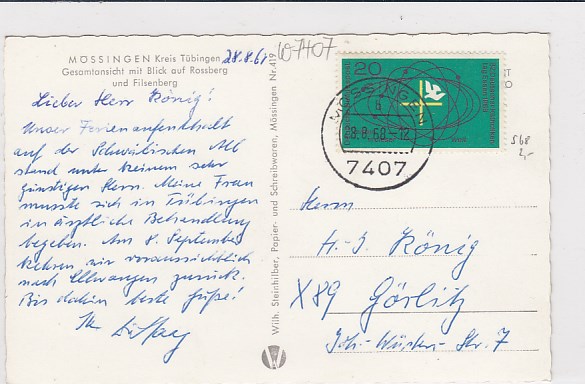 MÖSSINGEN Kreis Tübingen
Gesamtansicht mit Blick auf Rossberg
und Filsenberg
28.8.68
W7407
Lieber Herr König!
Unser Ferienaufenthalt
auf der Schwäbischen Alb
stand unter keinem sehr
günstigen Stern. Meine Frau
musste sich in Tübingen
in ärztliche Behandlung
begeben. Am 8. September
kehren wir voraussichtlich
nach Ellwangen zurück.
Bis dahin beste Grüße!
Ihr
Wilh. Steinhilber, Papier- und Schreibwaren, Mössingen Nr. 419
20
MÖSSINGEN
b
28.8.68-12
7407
568
2,-
Herrn
H.-J. König
X89 Görlitz
Joh.-Wüsten-Str. 7
W